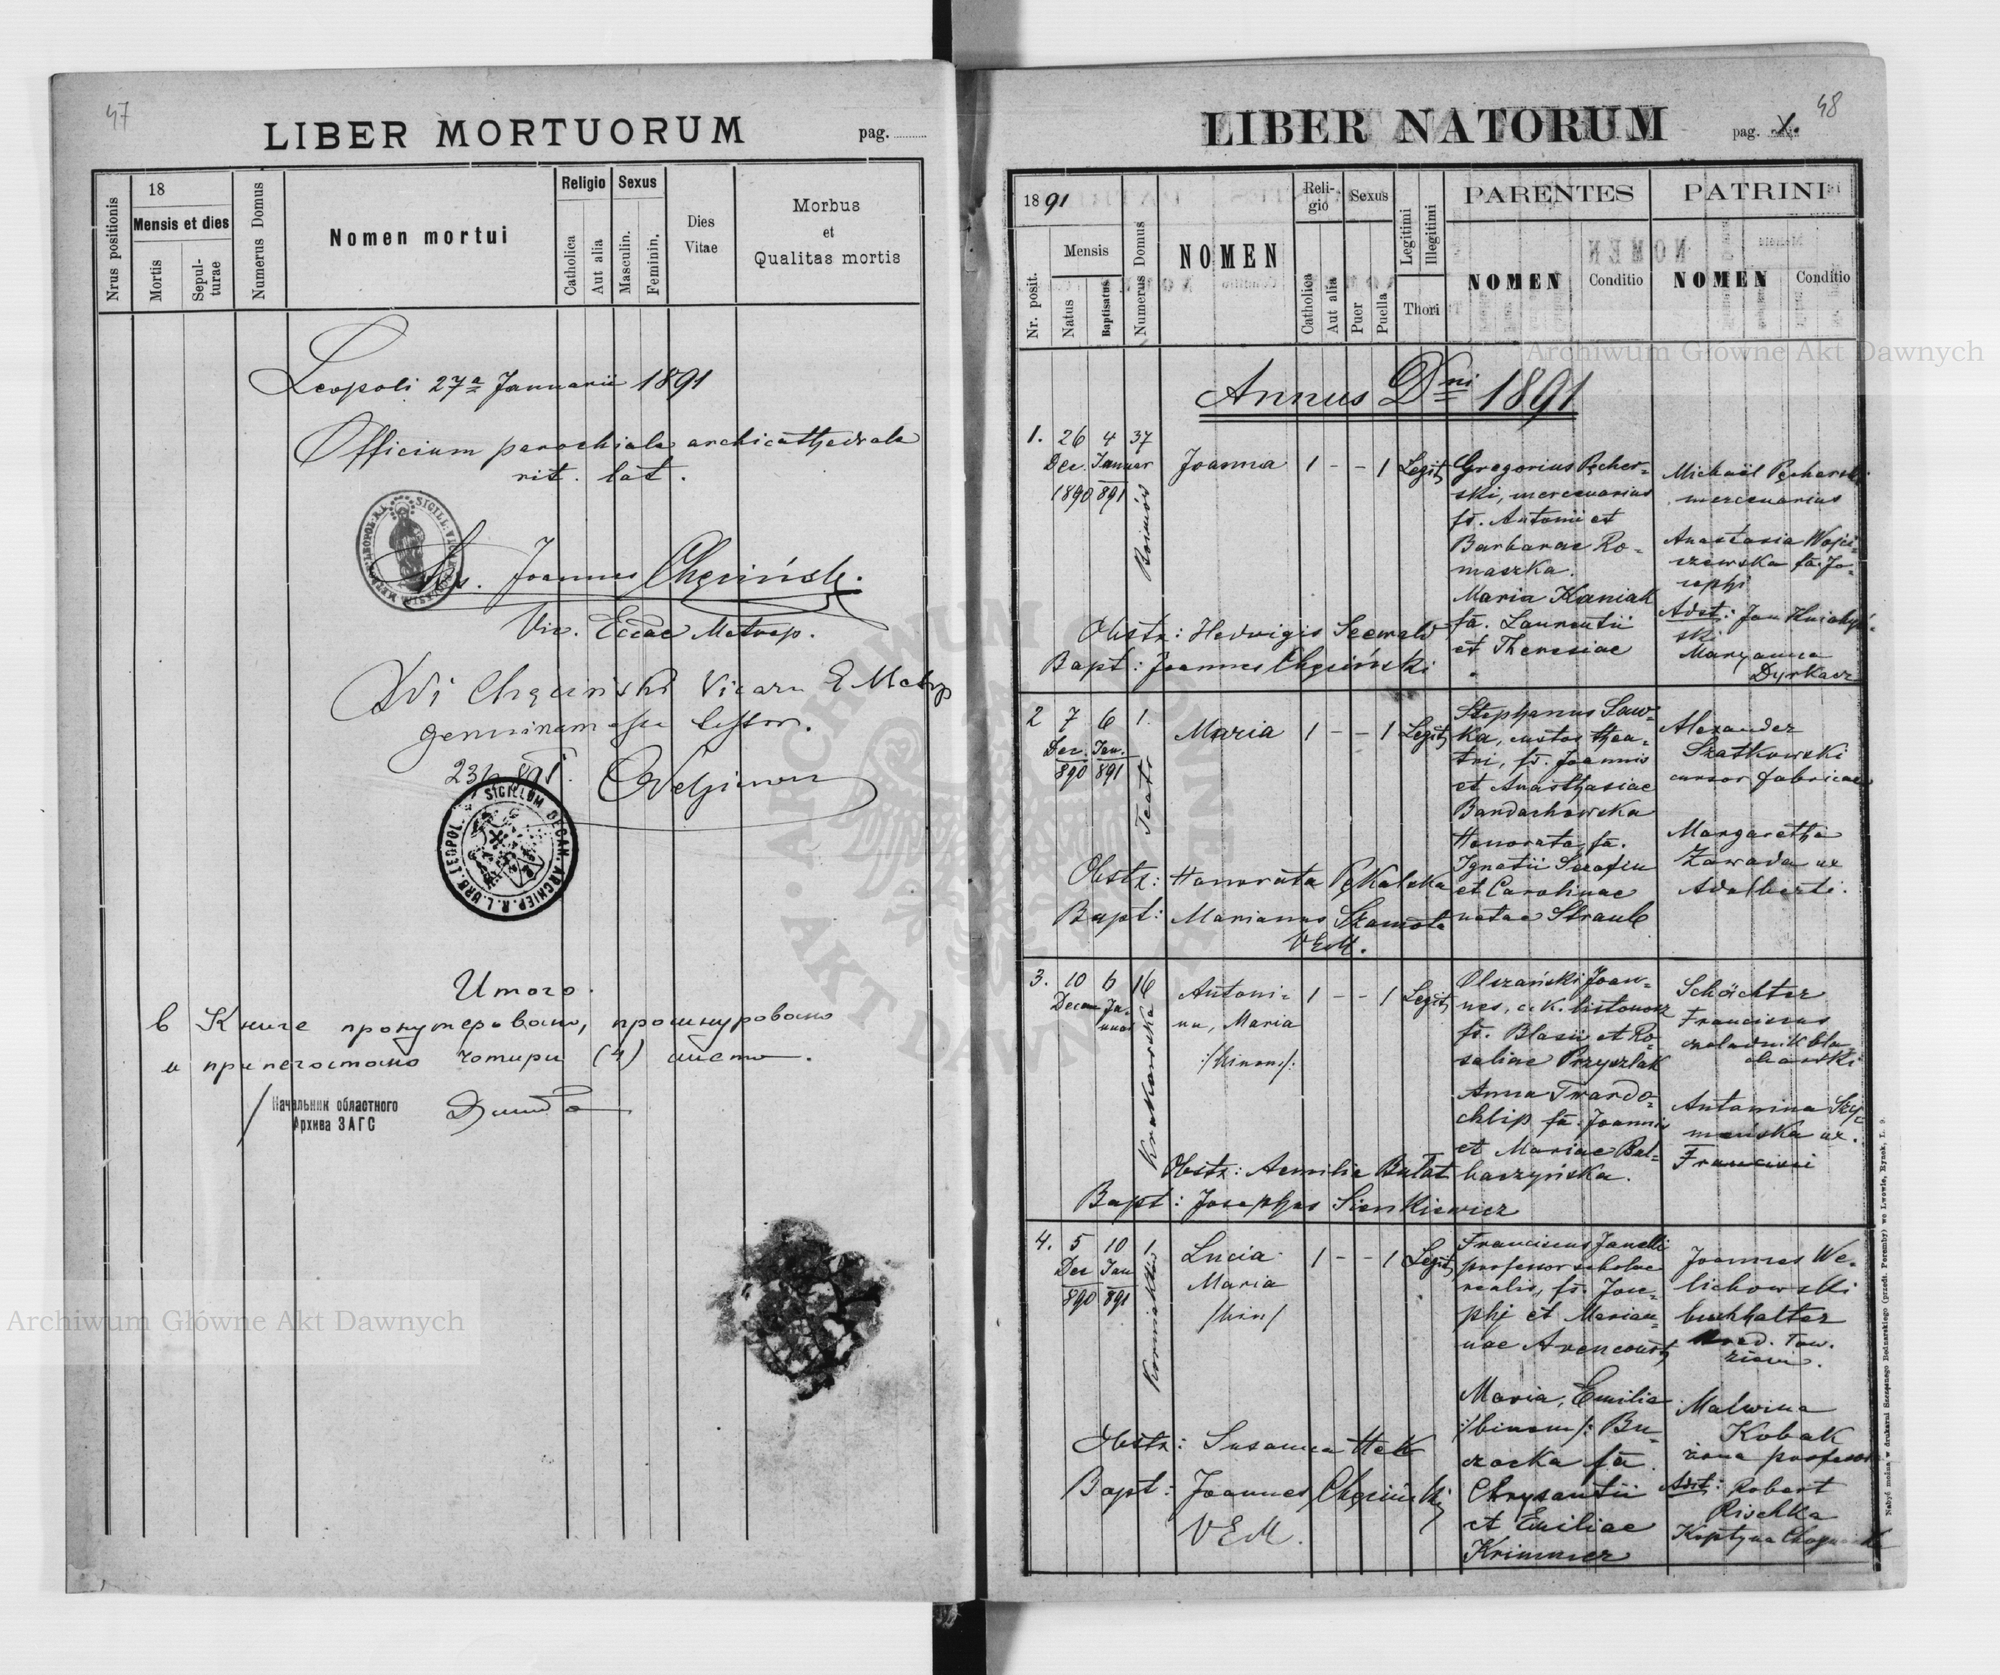 47
LIBER MORTUORUM
pag.
Nrus positionis
18
Mensis et dies
Mortis
Sepul-
turae
Numerus Domus
Nomen mortui
Religio
Catholica
Aut alia
Sexus
Masculin.
Feminin.
Dies
Vitae
Morbus
et
Qualitas mortis
Leopoli 27a Januarii 1891
Officium parochiale archicathedrale
rit. lat.
Joannes Chęciński.
Vic. Eccae Metrop.
Chęciński Vicarii E Metrop
genuinam esse testor.
SIGILLUM DECAN. ARCHIEP. R. L. URB. LEOPOL.
Итого.
в Книге пронумеровано, прошнуровано
и припечатано чотири (4) листа.
Начальник областного
Архива ЗАГС
48
LIBER NATORUM
pag. 1.
1891
Nr. posit.
Mensis
Natus
Baptisatus
Numerus Domus
NOMEN
Reli-
gio
Catholica
Aut alia
Sexus
Puer
Puella
Legitimi
Illegitimi
Thori
PARENTES
NOMEN
Conditio
PATRINI
NOMEN
Conditio
Annus Dni 1891
1. 26 4 37
Dec. Januar
1890 891
Boimów
Joanna 1 - - 1 Legit.
Gregorius Pęcher-
ski, mercenarius
fs. Antonii et
Barbarae Ro-
maszka.
Maria Kaniak
fa. Laurentii
et Theresiae
Michaël Pęcherski
mercenarius
Anastasia Wojci-
szewska fa. Jo-
sephi
Adst: Jan
Maryanna
Dyrkacz
Obstx: Hedvigis Seewald
Bapt: Joannes Chęciński
2 7 6 1.
Dec. Jan.
890 891
Teatr
Maria 1 - - 1 Legit.
Stephanus Saw-
ka, custos thea-
tri, fs. Joannis
et Anasthasiae
Bandachowska
Honorata, fa.
Ignatii Serafin
et Carolinae
natae Straub
Alexander
Szatkowski
cursor fabricae
Margaretha
Zawada ux
Adalberti.
Obstx: Honorata Pękalska
Bapt: Marianus Szamota
VEM.
3. 10 6 16
Decem Ja-
nuar
Krakowska
Antoni-
na, Maria
:/binom/:
1 - - 1 Legit.
Olszański Joan-
nes, c.k. listonosz
fs. Blasii et Ro-
saliae Przyszlak
Anna Twardo-
chlip fa. Joannis
et Mariae Bal-
baszyńska.
Schächter
Franciscus
czeladnik bla-
charski
Antonina Szy-
mańska ux.
Francisci
Obstx: Aemilia Bułat
Bapt: Josephus Sienkiewicz
4. 5 10 1
Dec Jan
890 891
Korniaktów
Lucia
Maria
/bin/
1 - - 1 Legit.
Franciscus Janelli
professor scholae
realis, fs. Jose-
phi et Marian-
nae Avencourt
Maria, Emilia
:/binom/: Bu-
czacka fa.
Chrysantii
et Emiliae
Krimmer
Joannes We-
lichowski
buchhalter
kred. Tow.
ziem.
Malwina
Kobak
żona profesora
Adst: Robert
Rischka
Obstx: Susanna Hak
Bapt: Joannes Chęciński
VEM.
Nabyć można w drukarni Szczęsnego Bednarskiego (przedt. Poremby) we Lwowie, Rynek, L. 9.
Archiwum Główne Akt Dawnych
Archiwum Główne Akt Dawnych
ARCHIWUM GŁÓWNE AKT DAWNYCH